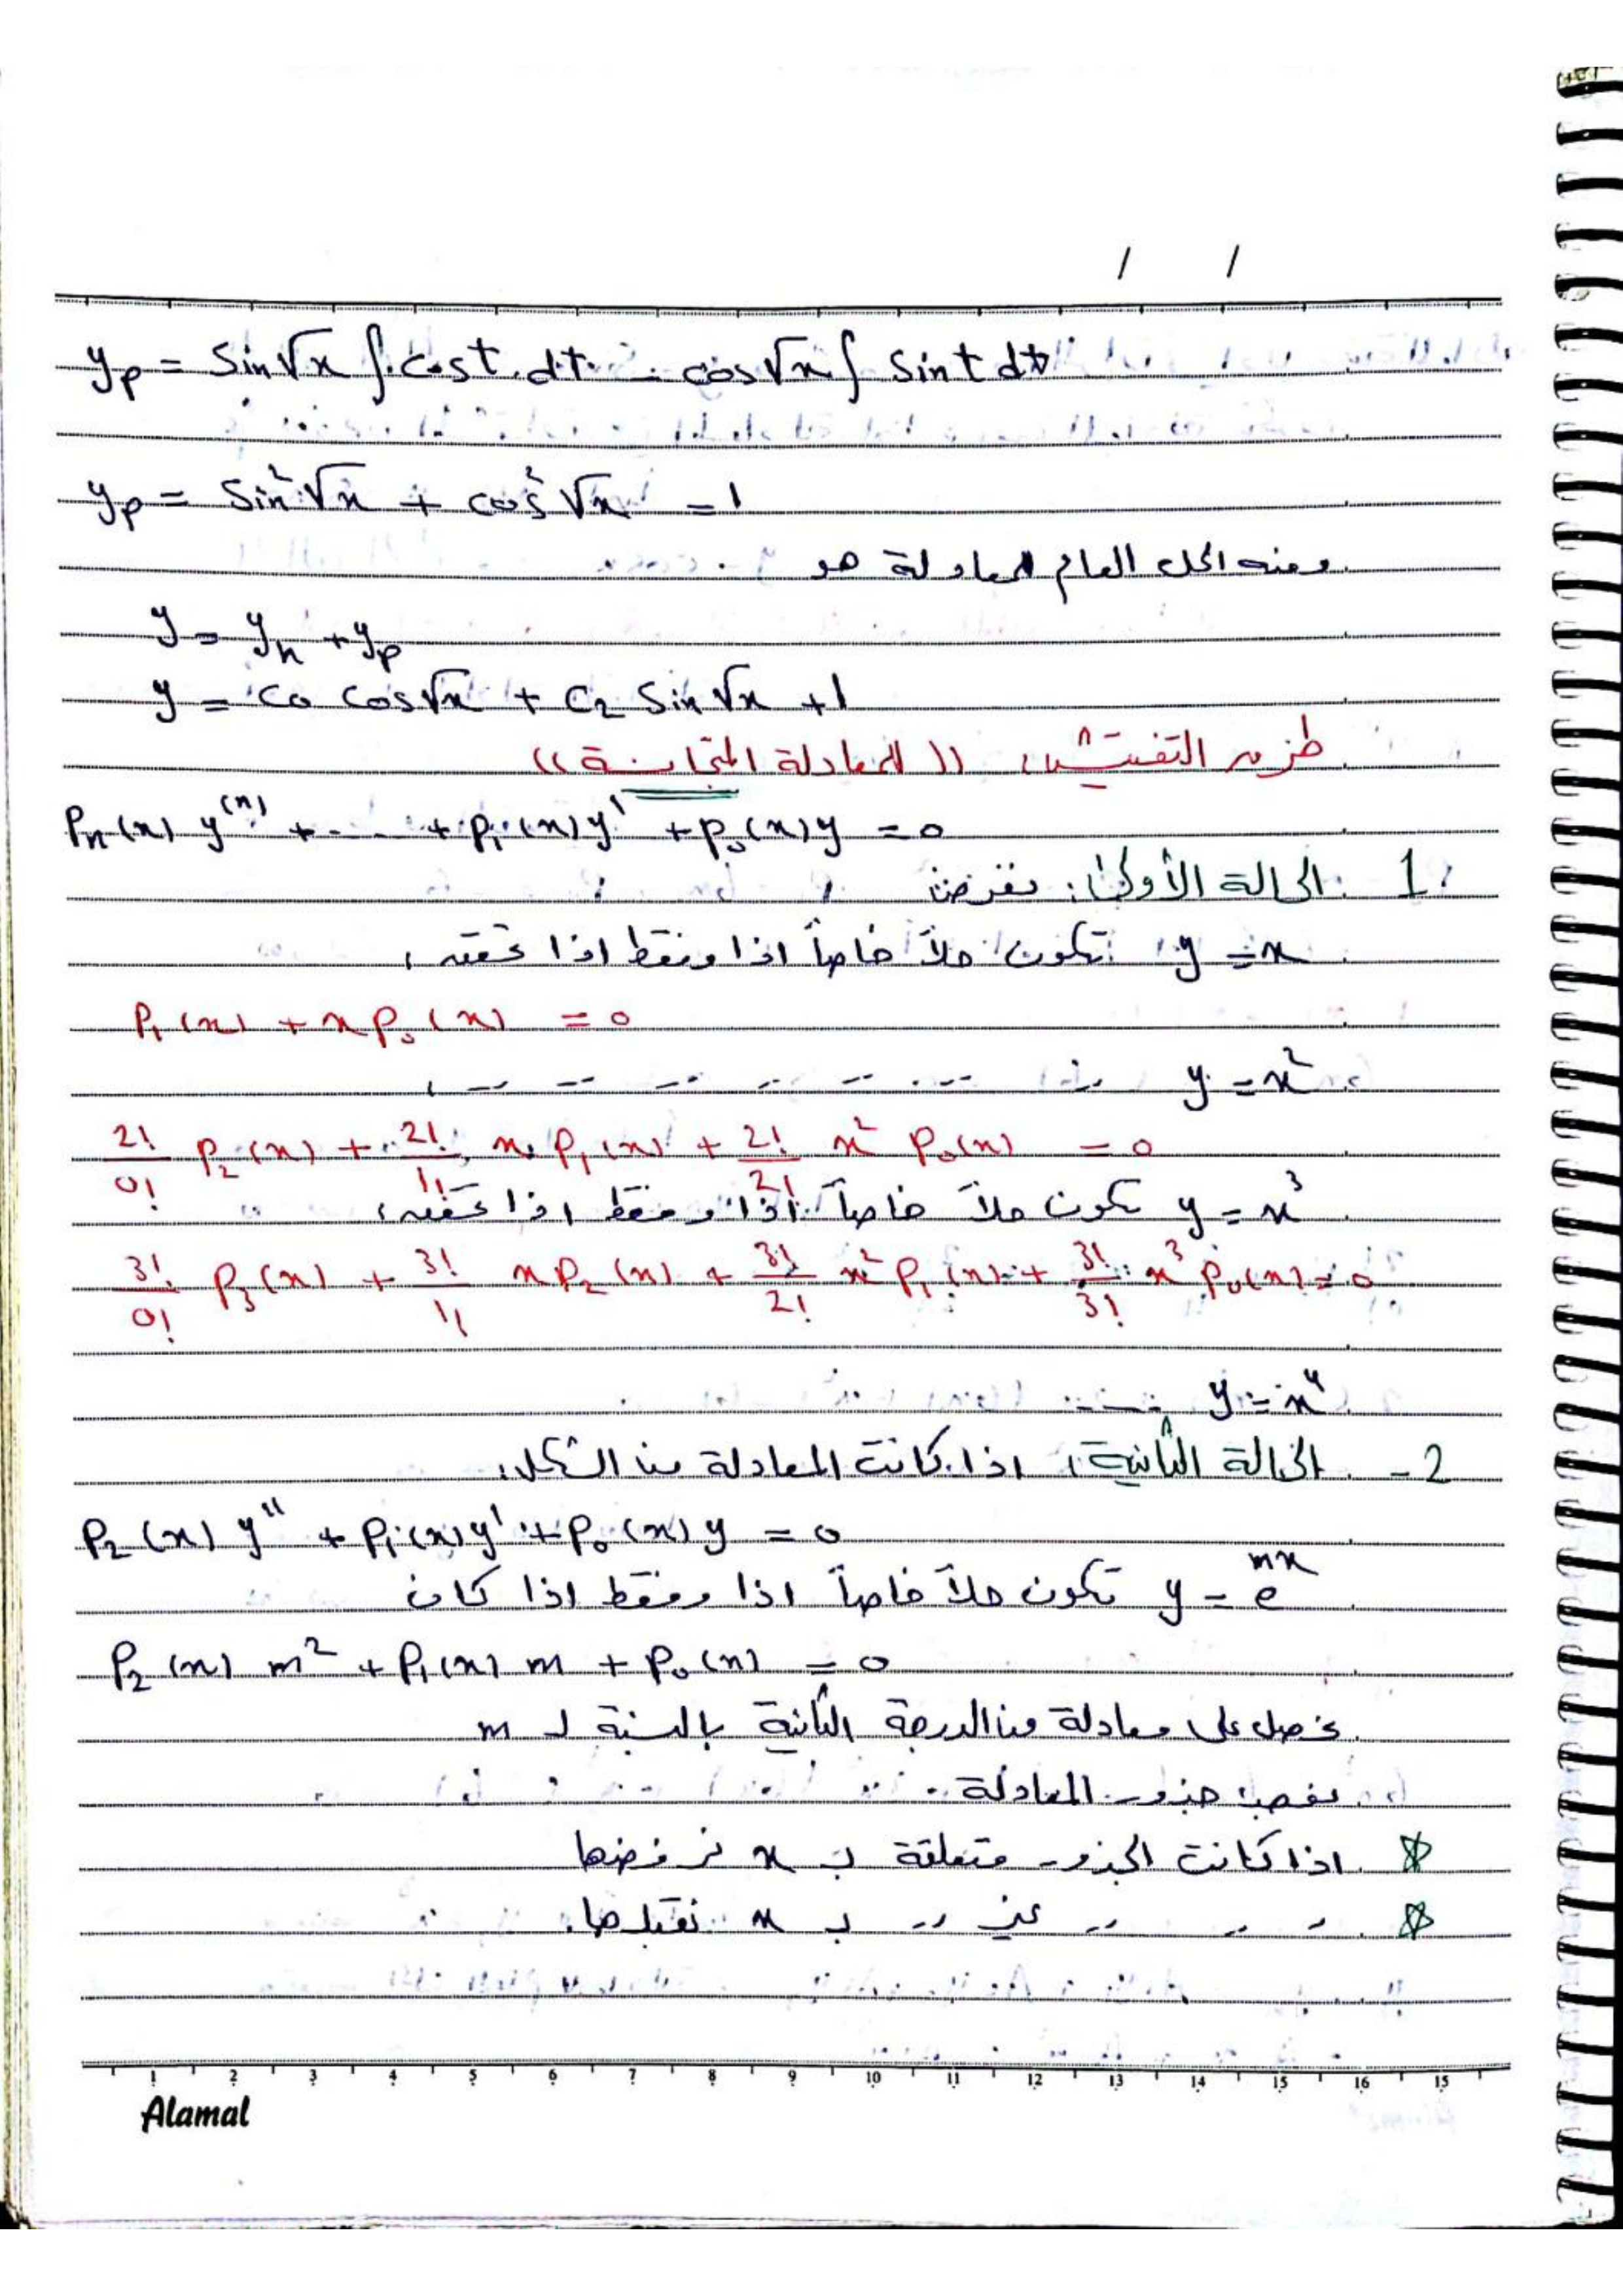 / /
yp = Sin√x ∫ cost dt - cos√x ∫ sint dt
yp = Sin²√x + cos²√x = 1
ومنه الحل العام للمعادلة هو
y = yh + yp
y = c0 cos√x + c2 Sin√x + 1
التفتيش (( للمعادلة المتجانسة ))
Pn(x) y⁽ⁿ⁾ + .... + P1(x) y' + P0(x) y = 0
1 الحالة الأولى: نفرض
y = x تكون حلاً خاصاً اذا وفقط اذا تحقق:
P1(x) + x P0(x) = 0
y = x²
2!/0! P2(x) + 2!/1! x P1(x) + 2!/2! x² P0(x) = 0
y = x³ تكون حلاً خاصاً اذا وفقط اذا تحقق:
3!/0! P3(x) + 3!/1! x P2(x) + 3!/2! x² P1(x) + 3!/3! x³ P0(x) = 0
y = x⁴ ....
2 - الحالة الثانية: اذا كانت المعادلة من الشكل:
P2(x) y'' + P1(x) y' + P0(x) y = 0
y = e^mx تكون حلاً خاصاً اذا وفقط اذا كان
P2(x) m² + P1(x) m + P0(x) = 0
نحصل على معادلة من الدرجة الثانية بالنسبة لـ m
جذور المعادلة
☆ اذا كانت الجذور متعلقة بـ x نرفضها
☆ 〃 〃 〃 غير 〃 بـ x نقبلها.
1 2 3 4 5 6 7 8 9 10 11 12 13 14 15 16 15
Alamal